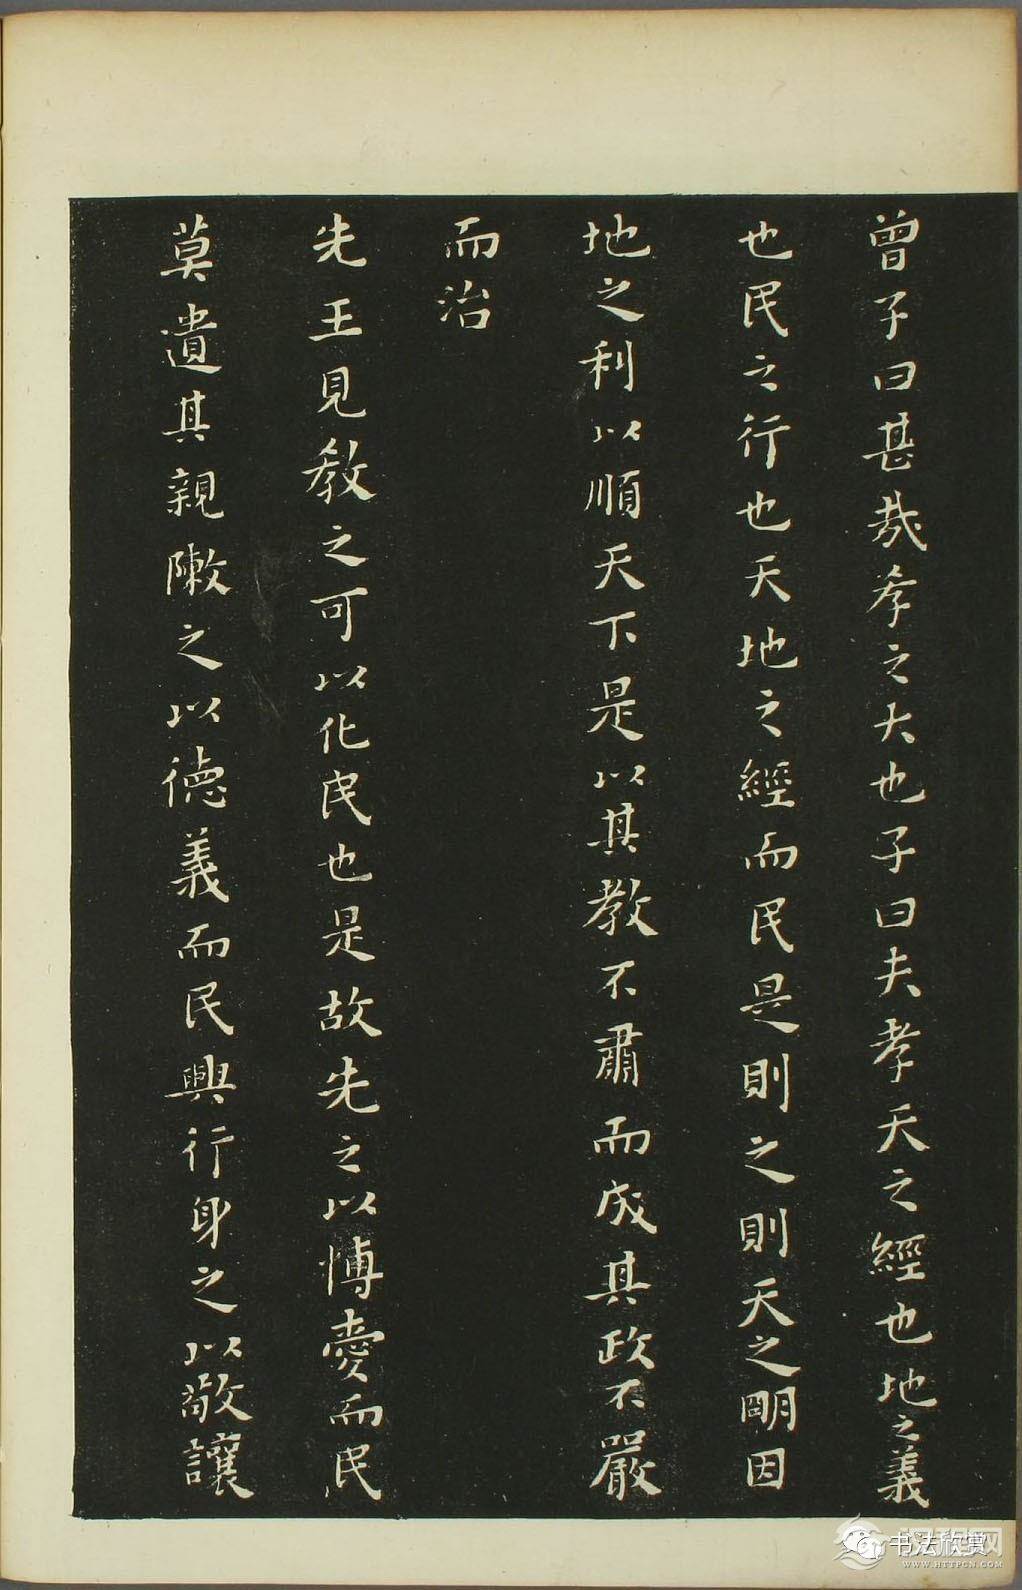 曾子曰甚哉孝之大也子曰夫孝天之經也地之義
也民之行也天地之經而民是則之則天之明因
地之利以順天下是以其教不肅而成其政不嚴
而治
先王見教之可以化民也是故先之以博愛而民
莫遺其親陳之以德義而民興行身之以敬讓
书法欣赏
WWW.HTTPCN.COM